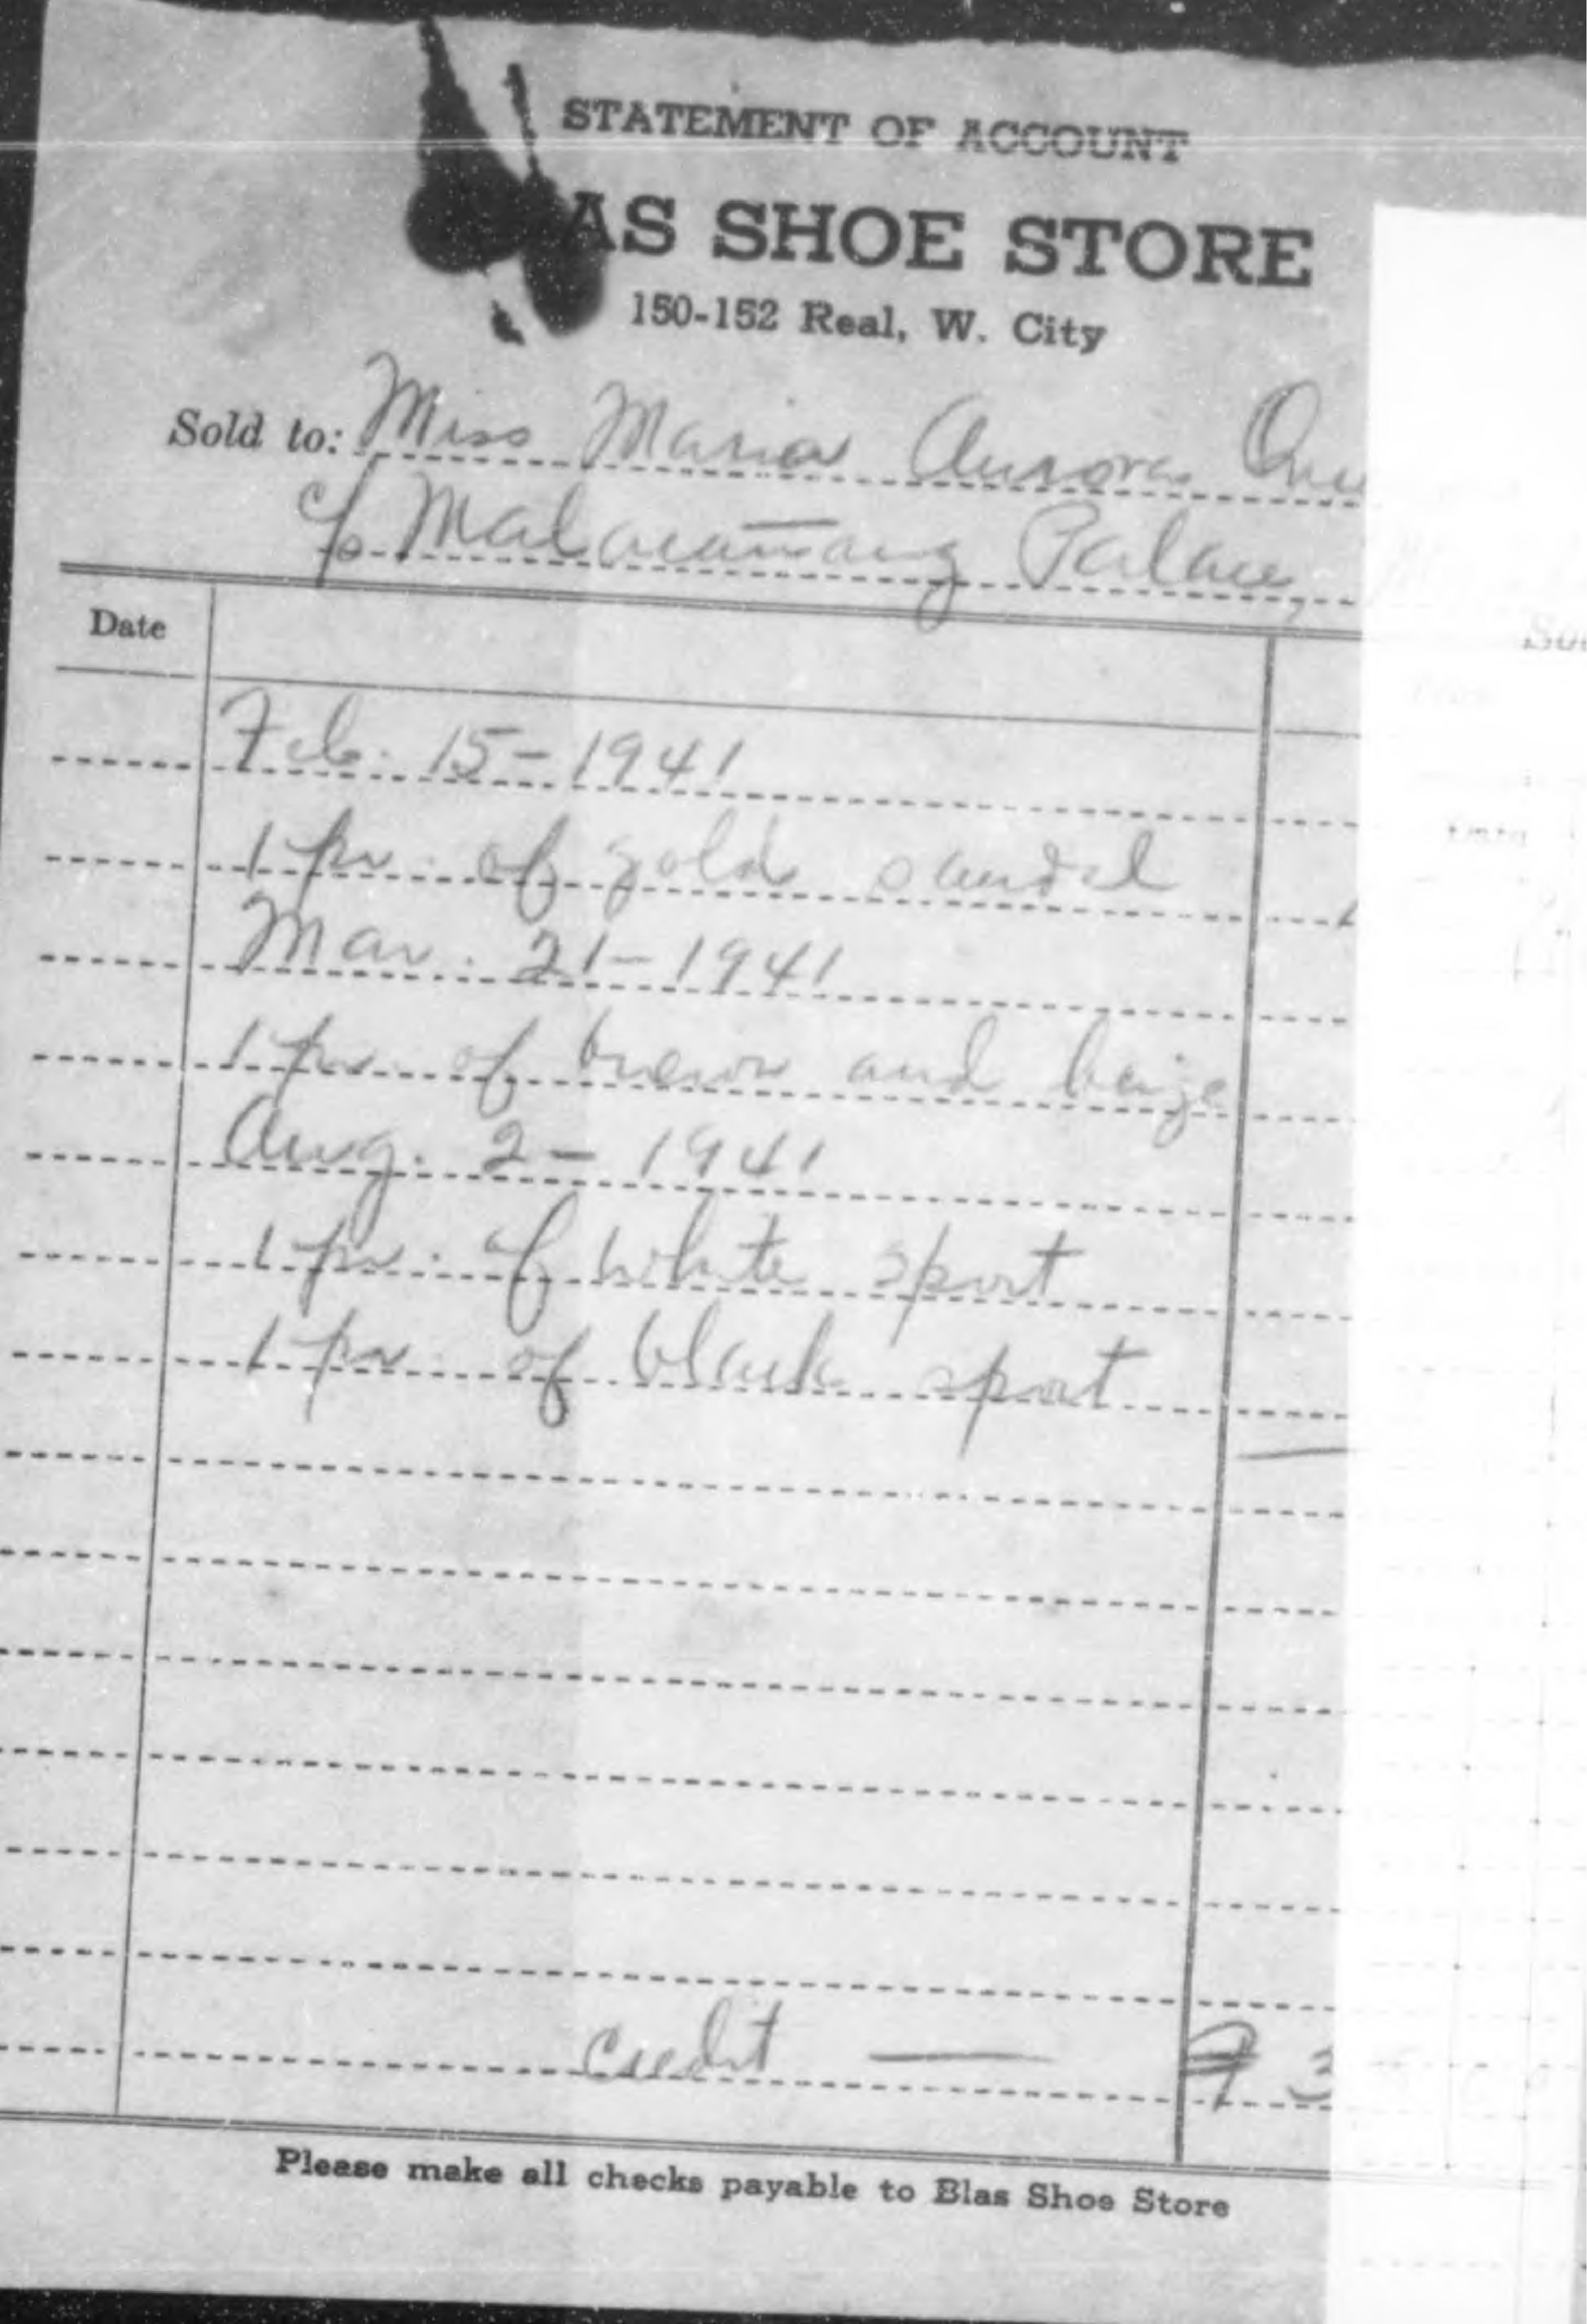 STATEMENT OF ACCOUNT
AS SHOE STORE
150-152 Real, W. City
Sold to: Miss Maria Aurora Que
c/o Malacañang Palace,
Date
Feb. 15-1941
1 pr. of gold sandel
Mar. 21-1941
1 pr. of brown and beige
Aug. 2-1941
1 pr. of white sport
1 pr. of black sport
credit — ₱ 3
Please make all checks payable to Blas Shoe Store